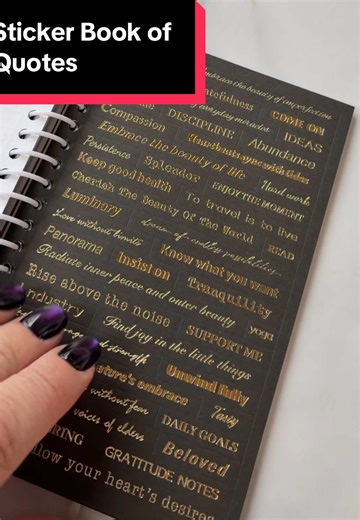 Sticker Book of
Quotes
Embrace the beauty of imperfection
COME ON
everyday miracles
DISCIPLINE
IDEAS
Compassion
Heartbeats sync with tides
Abundance
Embrace the beauty of life
Persistence
Splendor
ENJOY THE MOMENT
Hard work
Keep good health
To travel is to live
Cherish The Beauty Of The World
READ
Luminary
dream of endless possibilities
Love without limits
Know what you want
Panorama
Insist on
Tranquility
Radiate inner peace and outer beauty
yoga
Rise above the noise
SUPPORT ME
ndustry
Find joy in the little things
strength
ature's embrace
Unwind fully
without fear
Tasty
voices of elders
DAILY GOALS
RING
Beloved
GRATITUDE NOTES
llow your heart's desires